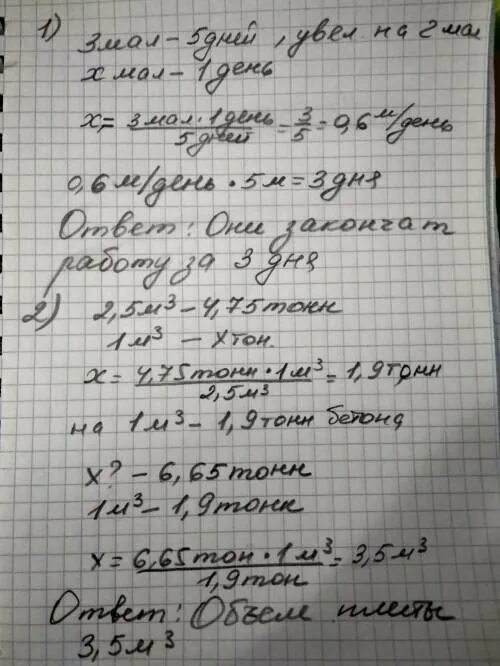 1)
3мал – 5дней, увел на 2мал
x мал – 1 день
x = 3мал · 1день / 5дней = 3/5 = 0,6 м/день
0,6м/день · 5м = 3дня
Ответ: Они закончат
работу за 3 дня
2) 2,5м³ – 4,75тонн
1м³ – xтон.
x = 4,75тонн · 1м³ / 2,5м³ = 1,9тонн
на 1м³ – 1,9тонн бетона
x? – 6,65тонн
1м³ – 1,9тонн
x = 6,65тон · 1м³ / 1,9тон = 3,5м³
Ответ: Объем плиты
3,5м³